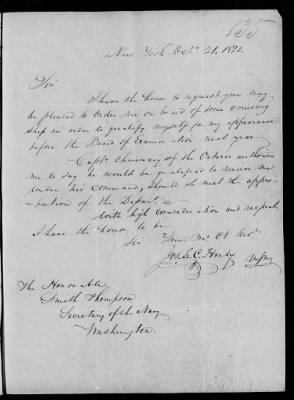 New York Octr 21. 1821.
Sir
I have the honor to request you may
be pleased to order me on board of some cruising
ship in order to qualify myself for my appearance
before the Board of Examination next year
Captn Chauncey of the Ontario authorises
me to say he would be gratified to receive me
under his command, should it meet the appro-
bation of the Departt
With high consideration and respect,
I have the honor to be
Sir Your Mo. Ob Servt
The Honorable
Smith Thompson
Secretary of the Navy
Washington.